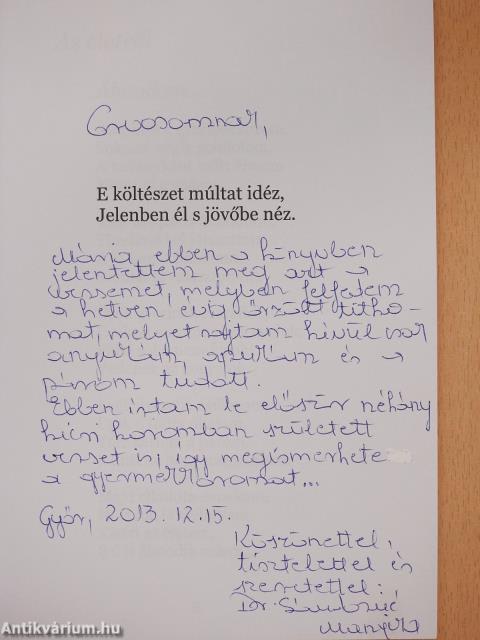 Orvosomnak,
E költészet múltat idéz,
Jelenben él s jövőbe néz.
Mária ebben a könyvben
jelentettem meg azt a
versemet, melyben felfedem
a hetven évig őrzött titko-
mat, melyet rajtam kívül csak
anyukám apukám és a
párom tudott.
Ebben írtam le először néhány
kicsi koromban született
verset is, így megismerheti
a gyermekkoromat...
Győr, 2013.12.15.
Köszönettel,
tisztelettel és
szeretettel:
Dr. Sándorné
Antikvárium.hu